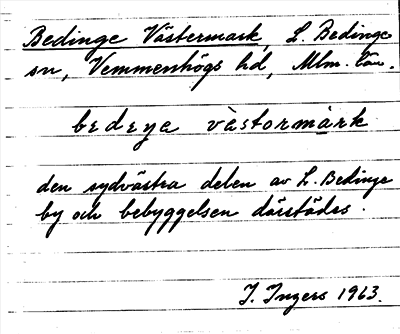 Bedinge Västermark, L. Bedinge
sn, Vemmenhögs hd, Mlm. län.
bedeŋa västormark
den sydvästra delen av L. Bedinge
by och bebyggelsen därstädes.
I. Ingers 1963.